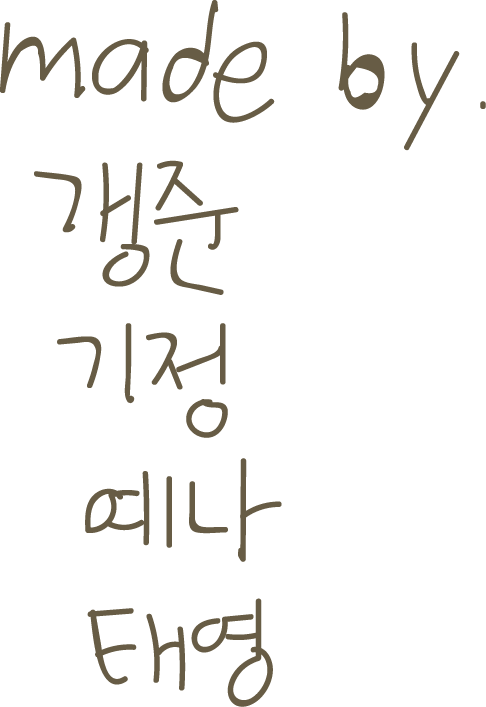 made by.
갱준
기정
예나
태영